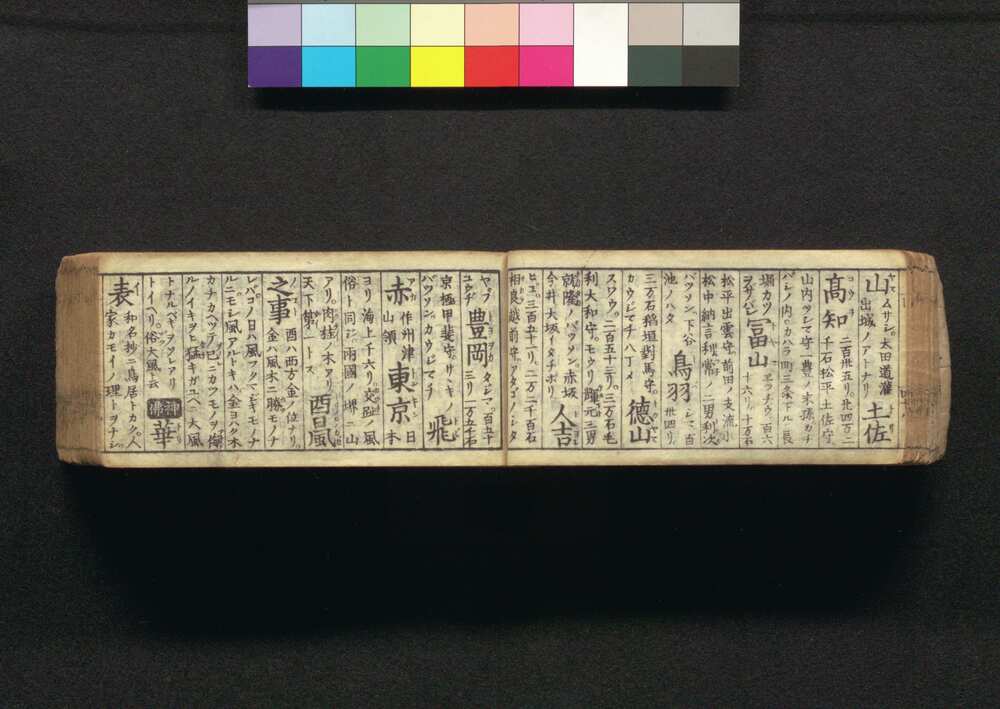 山 ムサシ。太田道灌
出城ノアトナリ 土佐
高知 二百卅五リ。廿四万二
千石松平土佐守
山内ツシマ守一豊ノ末孫カチ
バシノ内。カハラ町三条下ル 長
堀カツ 富山 エツチウ 百六
十六リ。十万石
松平出雲守前田ノ支流小
松中納言利常ノ二男利次
バツソン。下谷 鳥羽 シマ。百
卅四リ
池ノハタ
三万石稲垣對馬守。
カウジマチ八丁メ 德山
スワウ。二百五十三リ。三万石毛
利大和守。モウリ輝元三男
就隆ノバツソン 赤坂
今井大坂イタチボリ 人吉
ヒゴ。三百五十一リ。二万二千百石
相良越前守。アタゴノシタ
ヤブ 豊岡 タジマ。百五十
三リ一万五千石
京極甲斐守。リキノ
バツソン カウジマチ 飛
赤 作州津
山領 東京 日
本
ヨリ海上千六リ。交趾ノ風
俗ト同シ。両國ノ堺ニ山
アリ。肉桂ノ木アリ
天下第一トス 酉日風
之事 酉ハ西方金ノ位ナリ。
金ハ風木ニ勝モノナ
レバコノ日ハ風フクマジキモノナ
ルニモシ風アルトキハ金ヨハク木
カチカヘツテ己ニカクモノヲ侮
ルノイキヲヒ猛キガユヘニ大風
トナルベキヲソレアリ
トイヘリ。俗大風云 神佛 華
表 和名抄ニ鳥居トカク。人
家カモイノ理